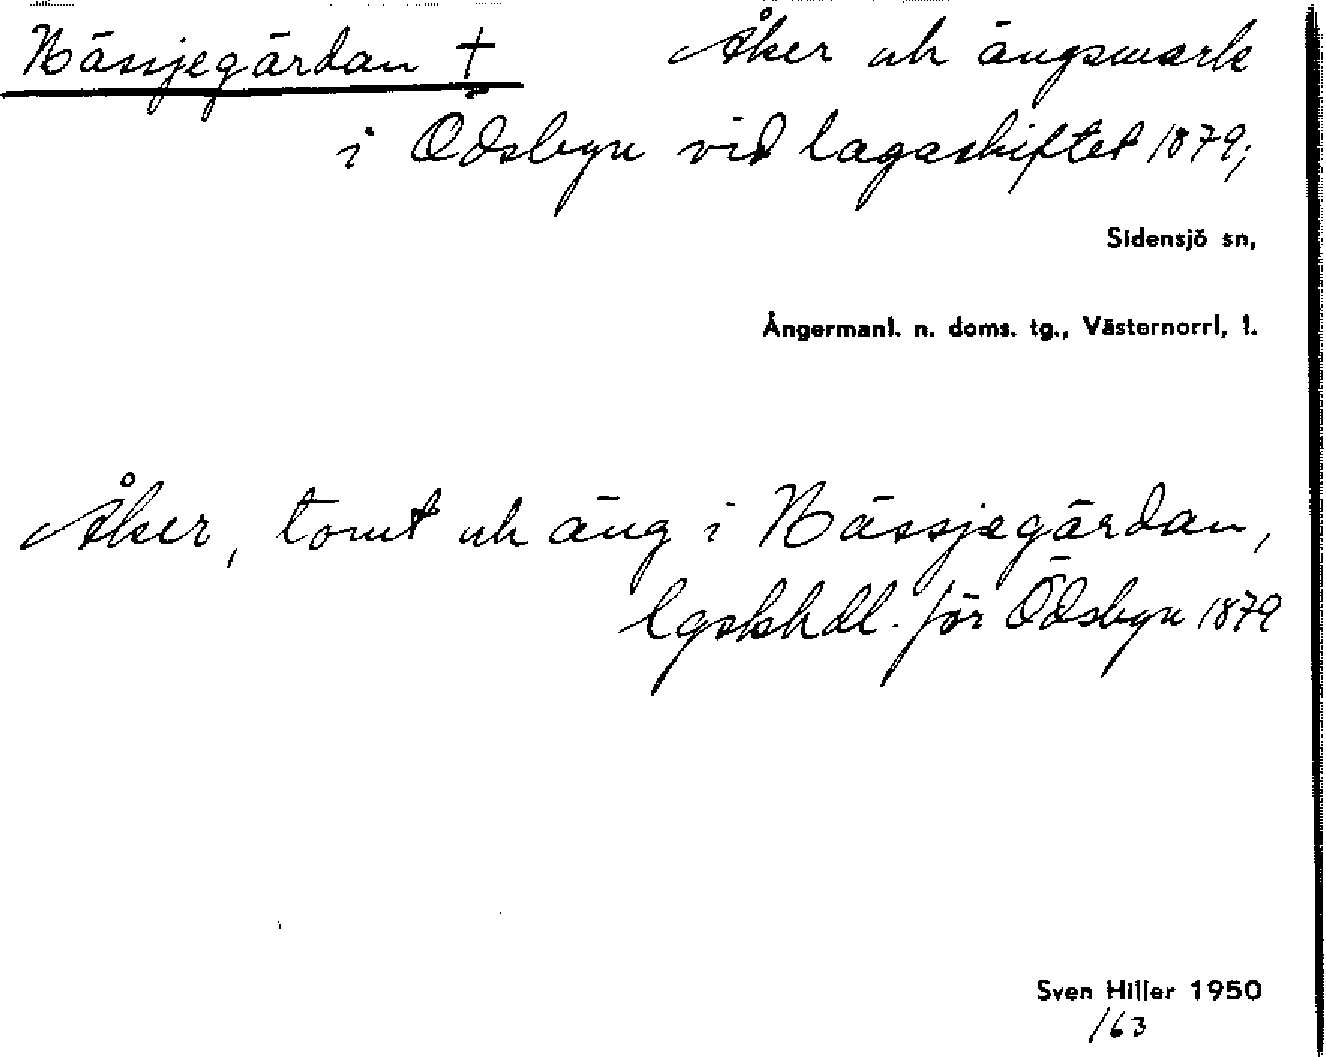 Hässjegärdan † Åker och ängsmark
i Ödsbyn vid lagaskiftet 1879;
Sidensjö sn,
Ångermanl. n. doms. tg., Västernorrl, l.
Åker, tomt och äng i Hässjegärdan,
lgskhdl. för Ödsbyn 1879
Sven Hiller 1950
/63